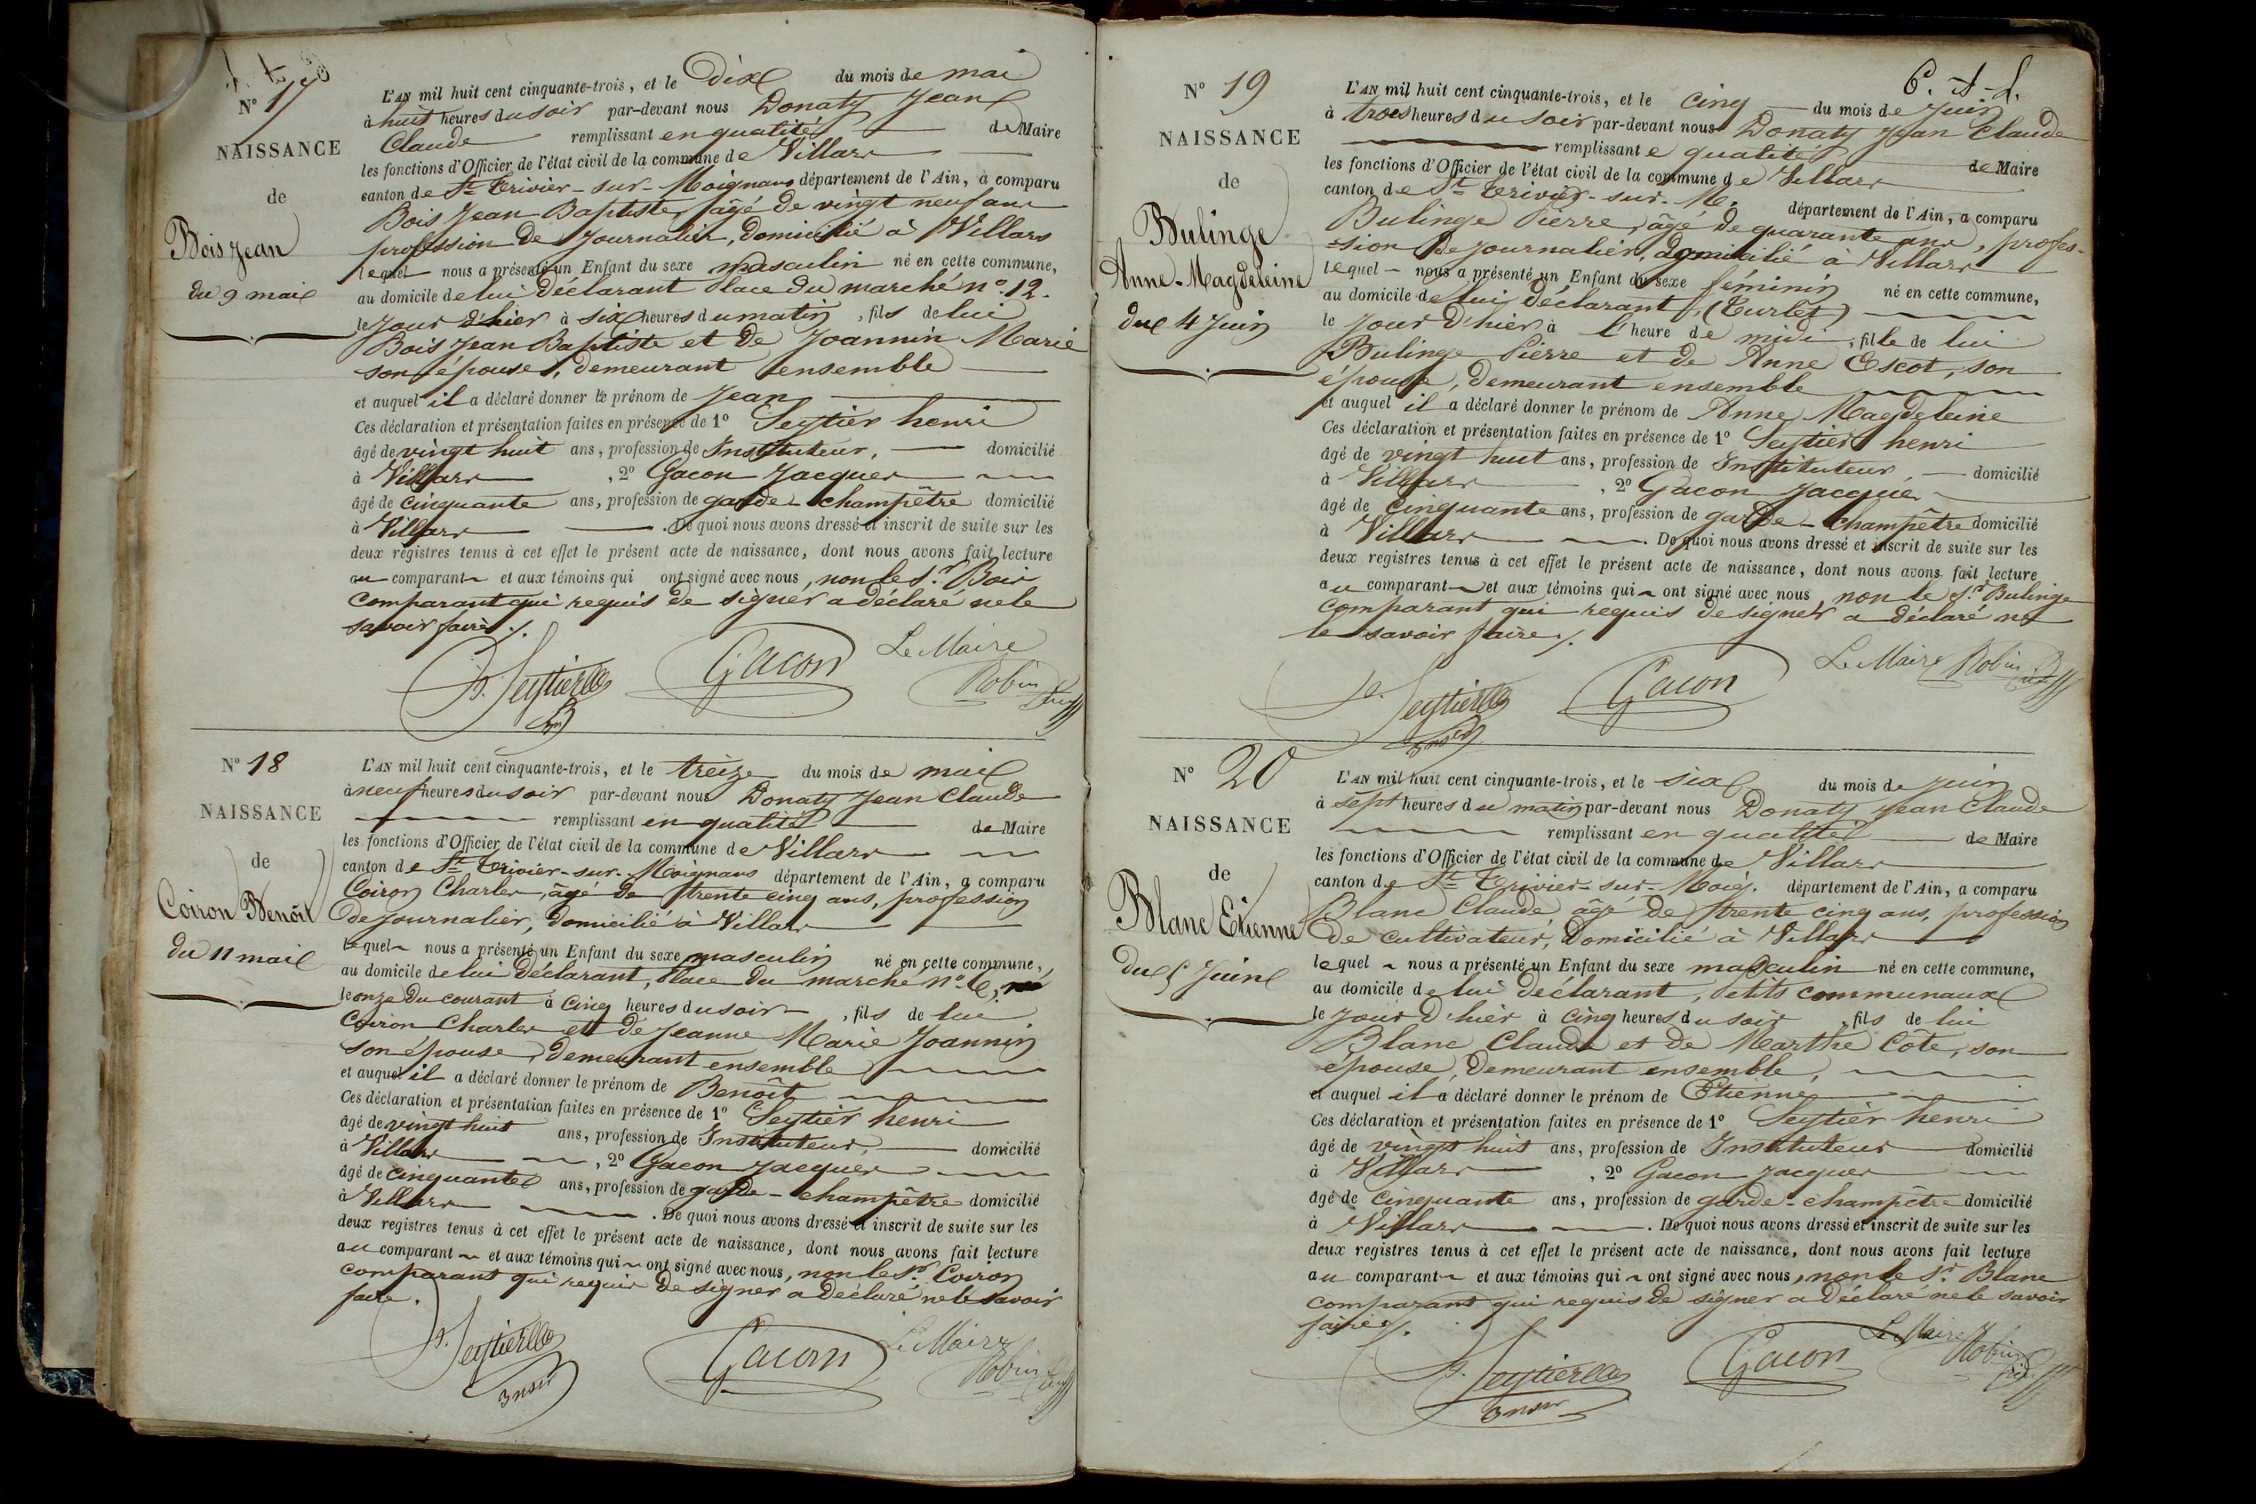 N° 17
NAISSANCE
de
Bois Jean
du 9 mai
L'AN mil huit cent cinquante-trois, et le Dix du mois de mai
à huit heures du soir par-devant nous Donaty Jean
Claude remplissant en qualité de Maire
les fonctions d'Officier de l'état civil de la commune de Villars
canton de St Trivier-sur-Moignans département de l'Ain, a comparu
Bois Jean Baptiste, âgé de vingt neuf ans
profession de Journalier, domicilié à Villars
lequel nous a présenté un Enfant du sexe masculin né en cette commune,
au domicile de lui déclarant Place du marché n° 12.
le Jour d'hier à six heures du matin, fils de lui
Bois Jean Baptiste et de Joannin Marie
son épouse, demeurant ensemble
et auquel il a déclaré donner le prénom de Jean
Ces déclaration et présentation faites en présence de 1° Seytier henri
âgé de vingt huit ans, profession de Instituteur, domicilié
à Villars, 2° Gacon Jacques
âgé de cinquante ans, profession de garde-champêtre domicilié
à Villars. De quoi nous avons dressé et inscrit de suite sur les
deux registres tenus à cet effet le présent acte de naissance, dont nous avons fait lecture
au comparant et aux témoins qui ont signé avec nous, non le Sr Bois
comparant qui requis de signer a déclaré ne le
savoir faire ./.
Le Maire
H. Seytier Gacon
Robin
N° 18
NAISSANCE
de
Coiron Benoît
du 11 mai
L'AN mil huit cent cinquante-trois, et le treize du mois de mai
à neuf heures du soir par-devant nous Donaty Jean Claude
remplissant en qualité de Maire
les fonctions d'Officier de l'état civil de la commune de Villars
canton de St Trivier-sur-Moignans département de l'Ain, a comparu
Coiron Charles, âgé de trente cinq ans, profession
de journalier, domicilié à Villars
lequel nous a présenté un Enfant du sexe masculin né en cette commune,
au domicile de lui déclarant, Place du marché n°
le onze du courant à cinq heures du soir, fils de lui
Coiron Charles et de Jeanne Marie Joannin
son épouse, demeurant ensemble
et auquel il a déclaré donner le prénom de Benoît
Ces déclaration et présentation faites en présence de 1° Seytier henri
âgé de vingt huit ans, profession de Instituteur, domicilié
à Villars, 2° Gacon Jacques
âgé de cinquante ans, profession de garde-champêtre domicilié
à Villars. De quoi nous avons dressé et inscrit de suite sur les
deux registres tenus à cet effet le présent acte de naissance, dont nous avons fait lecture
au comparant et aux témoins qui ont signé avec nous, non le Sr Coiron
comparant qui requis de signer a déclaré ne le savoir
faire.
Le Maire
H. Seytier Gacon
Robin
N° 19
NAISSANCE
de
Bulinge
Anne-Magdeleine
du 4 Juin
L'AN mil huit cent cinquante-trois, et le cinq du mois de Juin
à trois heures du soir par-devant nous Donaty Jean Claude
remplissant e qualité de Maire
les fonctions d'Officier de l'état civil de la commune de Villars
canton de St Trivier-sur-M. département de l'Ain, a comparu
Bulinge Pierre, âgé de quarante ans, profes-
-sion de journalier, domicilié à Villars
lequel nous a présenté un Enfant du sexe féminin né en cette commune,
au domicile de lui déclarant, (Turlet)
le Jour d'hier à l'heure de midi, fille de lui
Bulinge Pierre et de Anne Escot, son
épouse, demeurant ensemble
et auquel il a déclaré donner le prénom de Anne Magdeleine
Ces déclaration et présentation faites en présence de 1° Seytier henri
âgé de vingt huit ans, profession de Instituteur, domicilié
à Villars, 2° Gacon Jacques
âgé de cinquante ans, profession de garde-champêtre domicilié
à Villars. De quoi nous avons dressé et inscrit de suite sur les
deux registres tenus à cet effet le présent acte de naissance, dont nous avons fait lecture
au comparant et aux témoins qui ont signé avec nous, non le Sr Bulinge
comparant qui requis de signer a déclaré ne
le savoir faire ./.
Le Maire Robin
H. Seytier Gacon
N° 20
NAISSANCE
de
Blanc Etienne
du 5 Juin
L'AN mil huit cent cinquante-trois, et le six du mois de Juin
à sept heures du matin par-devant nous Donaty Jean Claude
remplissant en qualité de Maire
les fonctions d'Officier de l'état civil de la commune de Villars
canton de St Trivier-sur-Moig. département de l'Ain, a comparu
Blanc Claude, âgé de trente cinq ans, profession
de cultivateur, domicilié à Villars
lequel nous a présenté un Enfant du sexe masculin né en cette commune,
au domicile de lui déclarant, Petits communaux
le Jour d'hier à cinq heures du soir, fils de lui
Blanc Claude et de Marthe Côte, son
épouse, demeurant ensemble,
et auquel il a déclaré donner le prénom de Etienne
Ces déclaration et présentation faites en présence de 1° Seytier henri
âgé de vingt huit ans, profession de Instituteur domicilié
à Villars, 2° Gacon Jacques
âgé de cinquante ans, profession de garde-champêtre domicilié
à Villars. De quoi nous avons dressé et inscrit de suite sur les
deux registres tenus à cet effet le présent acte de naissance, dont nous avons fait lecture
au comparant et aux témoins qui ont signé avec nous, non le Sr Blanc
comparant qui requis de signer a déclaré ne le savoir
faire ./.
Le Maire
H. Seytier Gacon Robin